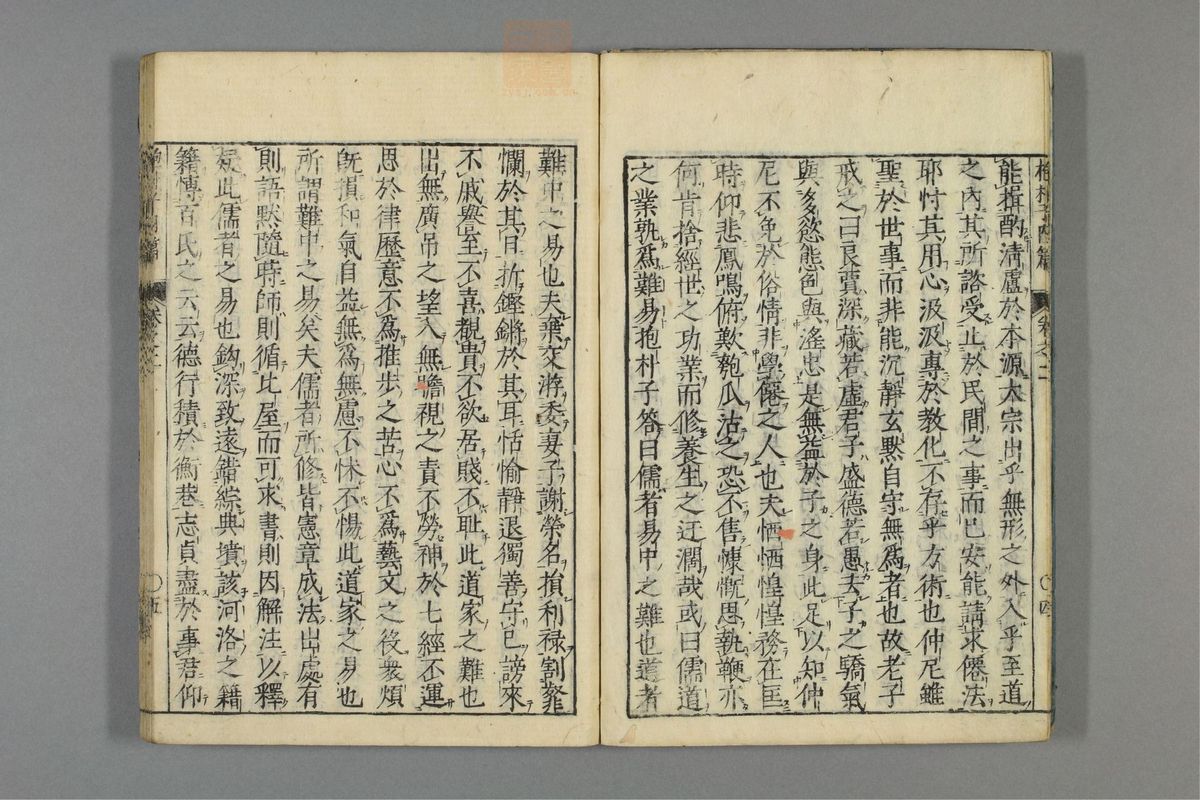 抱朴子內篇 卷之二 〇四
能楫酌清虛於本源大宗出乎無形之外入乎至道
之內其所諮受止於民間之事而巳安能請求僊法
耶忖其用心汲汲專於教化不存乎方術也仲尼雖
聖於世事而非能沉靜玄默自守無爲者也故老子
戒之曰良賈深藏若虛君子盛德若愚去子之驕氣
與多慾態色與滛志是無益於子之身此足以知仲
尼不免於俗情非學僊之人也夫恓恓惶惶務在匡
時仰悲鳳鳴俯歎匏瓜沽之恐不售慷慨思執鞭亦
何肯捨經世之功業而修養生之迂濶哉或曰儒道
之業孰爲難易抱朴子答曰儒者易中之難也道者
難中之易也夫棄交游委妻子謝榮名損利祿割
爛於其目抑鏗鏘於其耳恬愉靜退獨善守巳謗來
不戚譽至不喜覩貴不欲居賤不耻此道家之難也
出無廣吊之望入無瞻視之責不勞神於七經不運
思於律歷意不爲推步之苦心不爲藝文之役衆煩
旣損和氣自益無爲無慮不怵不惕此道家之易也
所謂難中之易矣夫儒者所修皆憲章成法出處有
則語默隨時師則循比屋而可求書則因解注以釋
疑此儒者之易也鈎深致遠錯綜典墳該河洛之籍
籍博百氏之云云德行積於衡巷志貞盡於事君仰
〇五